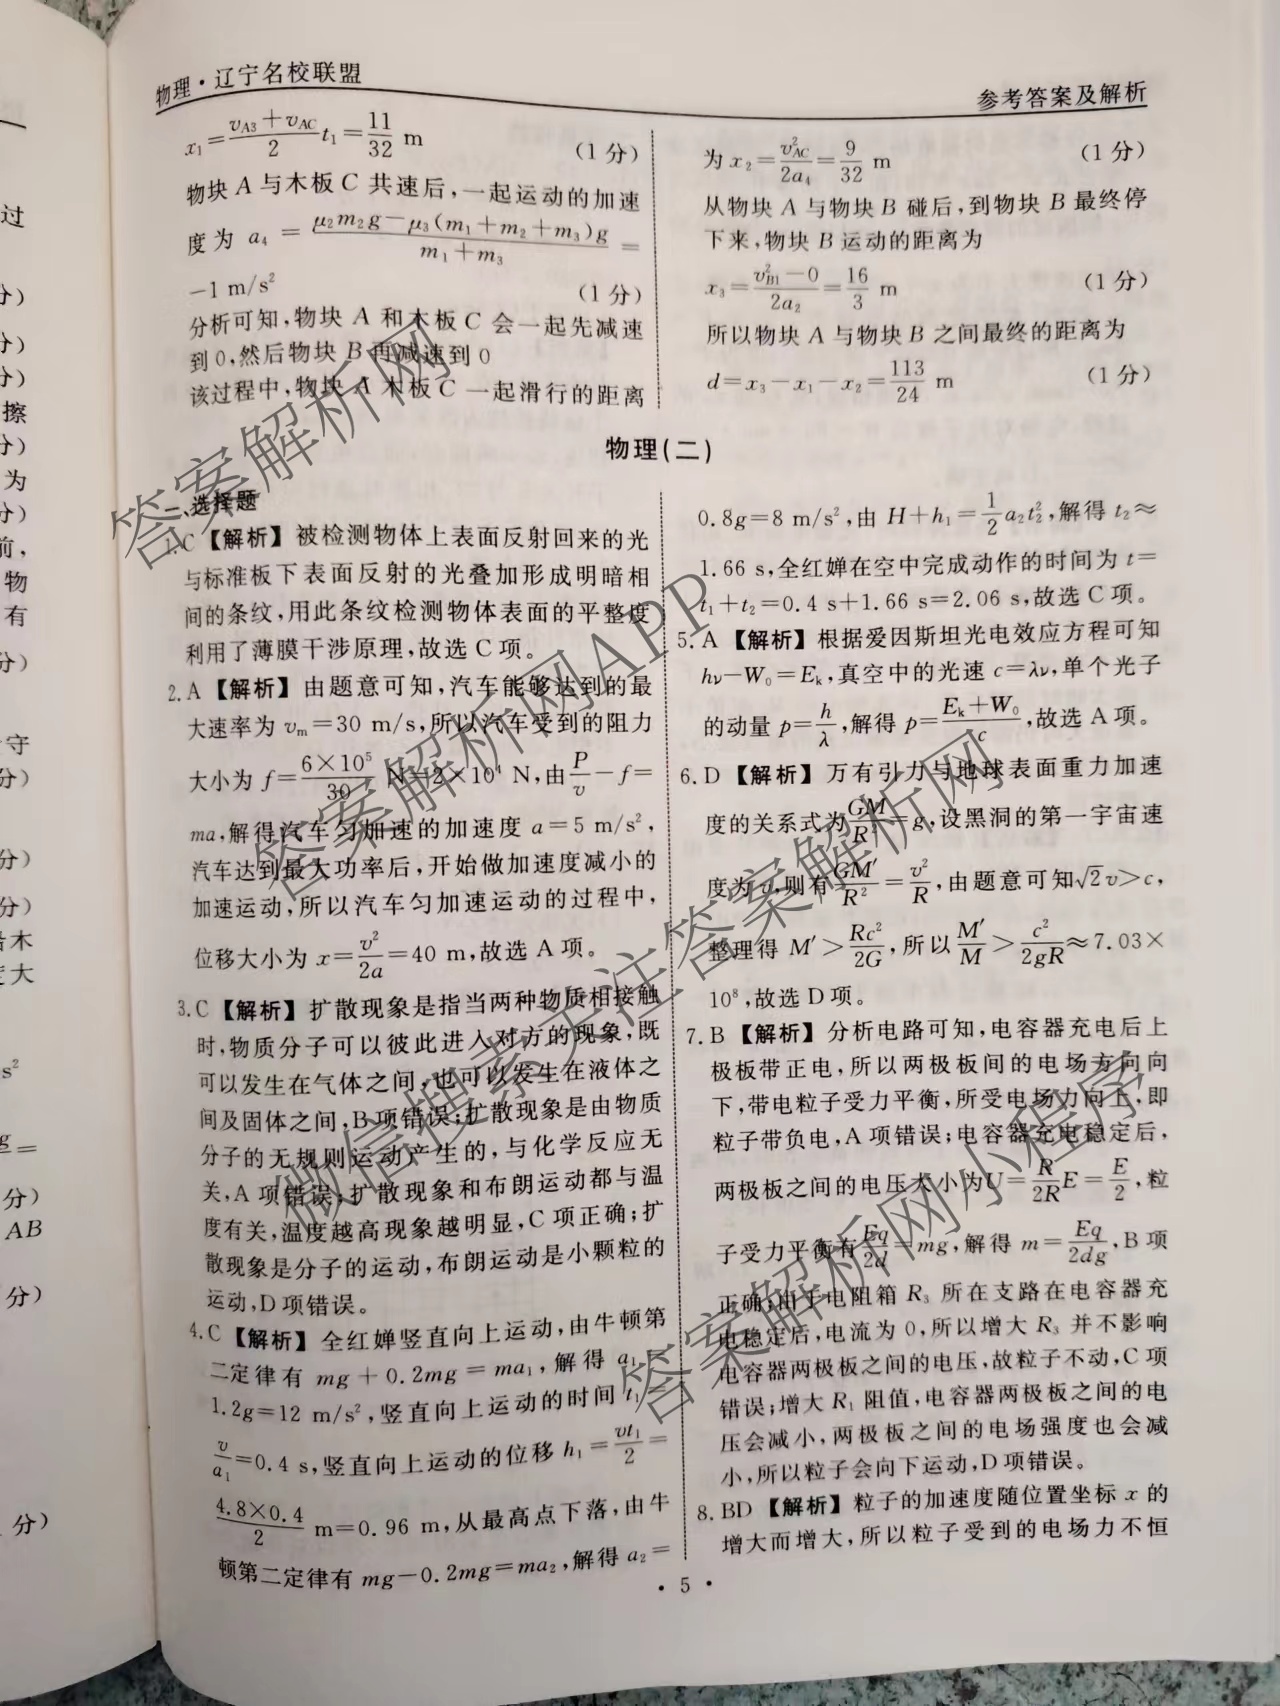 物理·辽宁名校联盟
参考答案及解析
x₁=(v_A3+v_AC)/2 t₁=11/32 m
(1分)
物块 A 与木板 C 共速后,一起运动的加速
度为 a₄ = (μ₂m₂g-μ₃(m₁+m₂+m₃)g)/(m₁+m₃) =
-1 m/s²
(1分)
分析可知,物块 A 和木板 C 会一起先减速
到0,然后物块 B 再减速到 0
该过程中,物块 A 木板 C 一起滑行的距离
为 x₂=v²_AC/2a₄=9/32 m
(1分)
从物块 A 与物块 B 碰后,到物块 B 最终停
下来,物块 B 运动的距离为
x₃=(v²_B1-0)/2a₂=16/3 m
(1分)
所以物块 A 与物块 B 之间最终的距离为
d=x₃-x₁-x₂=113/24 m
(1分)
物理(二)
一、选择题
1.C【解析】被检测物体上表面反射回来的光
与标准板下表面反射的光叠加形成明暗相
间的条纹,用此条纹检测物体表面的平整度
利用了薄膜干涉原理,故选 C 项。
2.A【解析】由题意可知,汽车能够达到的最
大速率为 vₘ=30 m/s,所以汽车受到的阻力
大小为 f=6×10⁵/30 N=2×10⁴ N,由P/v-f=
ma,解得汽车匀加速的加速度 a=5 m/s²,
汽车达到最大功率后,开始做加速度减小的
加速运动,所以汽车匀加速运动的过程中,
位移大小为 x=v²/2a=40 m,故选 A 项。
3.C【解析】扩散现象是指当两种物质相接触
时,物质分子可以彼此进入对方的现象,既
可以发生在气体之间,也可以发生在液体之
间及固体之间,B项错误;扩散现象是由物质
分子的无规则运动产生的,与化学反应无
关,A 项错误;扩散现象和布朗运动都与温
度有关,温度越高现象越明显,C 项正确;扩
散现象是分子的运动,布朗运动是小颗粒的
运动,D项错误。
4.C【解析】全红婵竖直向上运动,由牛顿第
二定律有 mg+0.2mg=ma₁,解得 a₁=
1.2g=12 m/s²,竖直向上运动的时间 t₁=
v/a₁=0.4 s,竖直向上运动的位移 h₁=vt₁/2=
(4.8×0.4)/2 m=0.96 m,从最高点下落,由牛
顿第二定律有 mg-0.2mg=ma₂,解得 a₂=
0.8g=8 m/s²,由 H+h₁=1/2 a₂t₂²,解得 t₂≈
1.66 s,全红婵在空中完成动作的时间为 t=
t₁+t₂=0.4 s+1.66 s=2.06 s,故选 C 项。
5.A【解析】根据爱因斯坦光电效应方程可知
hν-W₀=Eₖ,真空中的光速 c=λν,单个光子
的动量 p=h/λ,解得 p=(Eₖ+W₀)/c,故选 A 项。
6.D【解析】万有引力与地球表面重力加速
度的关系式为GM/R²=g,设黑洞的第一宇宙速
度为 v,则有GM′/R²=v²/R,由题意可知√2v>c,
整理得 M′>Rc²/2G,所以M′/M>c²/2gR≈7.03×
10⁸,故选 D 项。
7.B【解析】分析电路可知,电容器充电后上
极板带正电,所以两极板间的电场方向向
下,带电粒子受力平衡,所受电场力向上,即
粒子带负电,A 项错误;电容器充电稳定后,
两极板之间的电压大小为U=R/2R E=E/2,粒
子受力平衡有Eq/2d=mg,解得 m=Eq/2dg,B 项
正确;由于电阻箱 R₃ 所在支路在电容器充
电稳定后,电流为 0,所以增大 R₃ 并不影响
电容器两极板之间的电压,故粒子不动,C 项
错误;增大 R₁ 阻值,电容器两极板之间的电
压会减小,两极板之间的电场强度也会减
小,所以粒子会向下运动,D项错误。
8.BD【解析】粒子的加速度随位置坐标 x 的
增大而增大,所以粒子受到的电场力不恒
· 5 ·
答案解析网
答案解析网APP
微信搜索关注答案解析网
答案解析网小程序
过
分)
分)
分)
擦
分)
为
分)
前,
物
有
分)
守
分)
分)
分)
木
度大
s²
g=
分)
AB
分)
分)